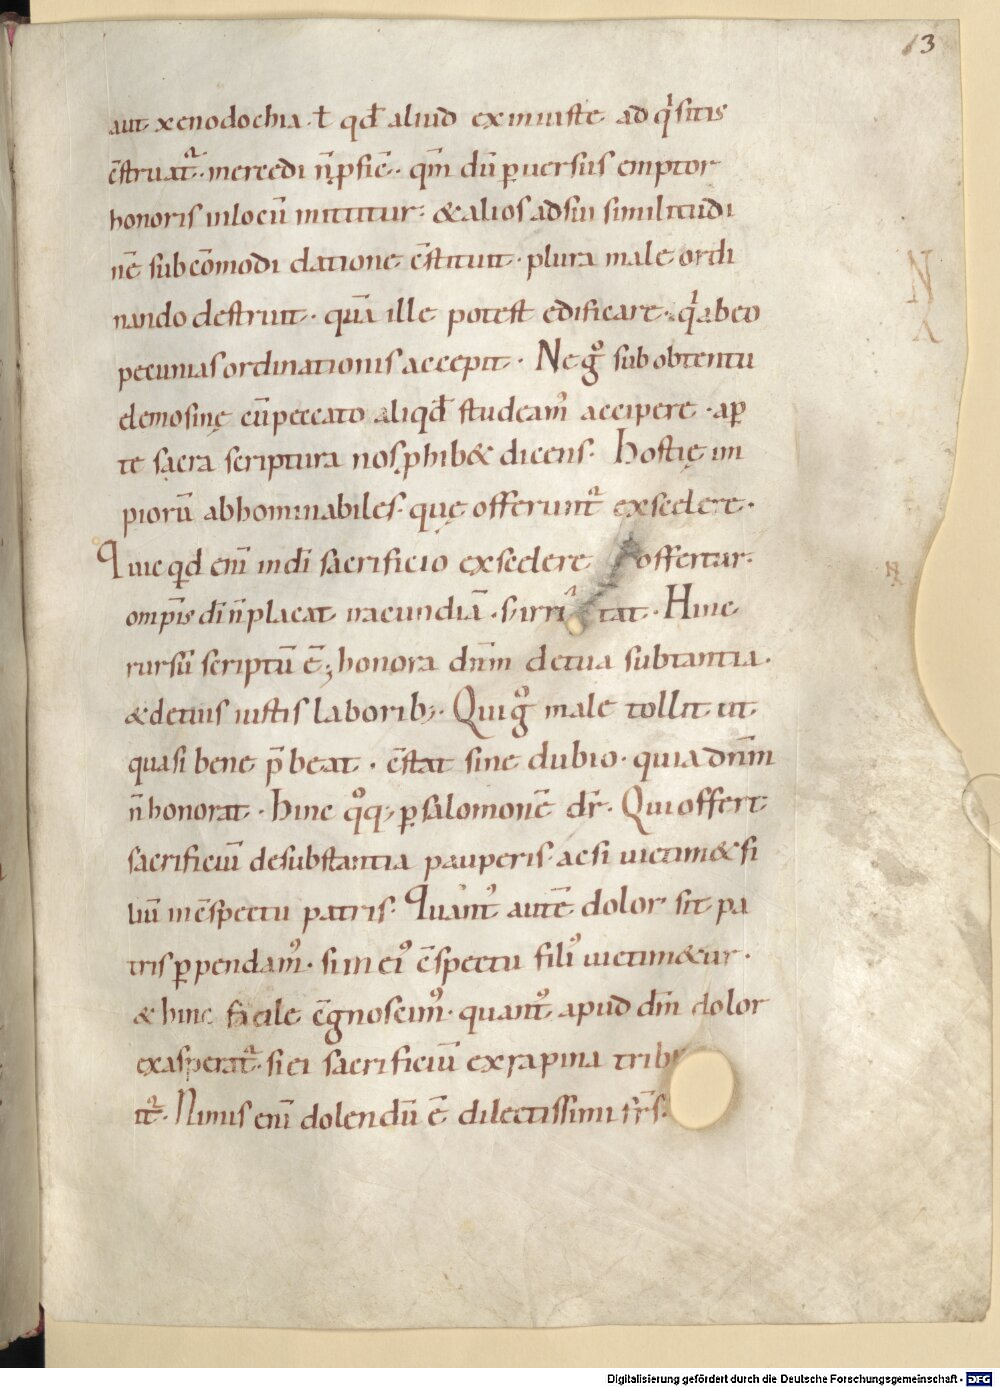 13
aut xenodochia ł qđ aliud ex iniuste ad q̇sitis
c̄struat᷑· mercedi n̄ p̱ficē· qm̄ dū ꝑuersus emptor
honoris inlocū mittitur· &alios adsui similitudi
nē sub cōmodi datione c̄stituit· plura male ordi
nando destruit· quā ille potest edificare· q̇ abeo
pecunias ordinationis accepit· Ne gͦ sub obtentu
elemosinę cū peccato aliqđ studeam᾿ accipere· aꝑ
te sacra scriptura nos ꝓhib& dicens· Hostię im
piorū abhominabiles· quę offerunt᷑ ex scelere·
Quicqd enī in dī sacrificio ex scelere offertur·
omp̄tis dī n̄ placat iracundiā· s; irri tat· Hinc
rursū scriptū ē; honora dnm̄ detua subtantia·
&detuis iustis laborib;· Qui gͦ male tollit ut
quasi bene p̄beat· c̄stat sine dubio· quia dnm̄
n̄ honorat· Hinc qͦq; ꝑ salomonē dr̄· Qui offert
sacrificiū desubstantia pauperis· acsi uictim& fi
liū in c̄spectu patris· Quant᾿ autē dolor sit pa
tris ꝑpendam᾿· si in ei᾿ c̄spectu fili᾿ uictim&ur·
& hinc facile c̄gnoscim᾿· quant᾿ apud dm̄ dolor
exasperat᷑· si ei sacrificiū ex rapina trib
it᷑· Nimis enī dolendū ē dilectissimi fr̄s·
N
X
N
X
Digitalisierung gefördert durch die Deutsche Forschungsgemeinschaft · DFG